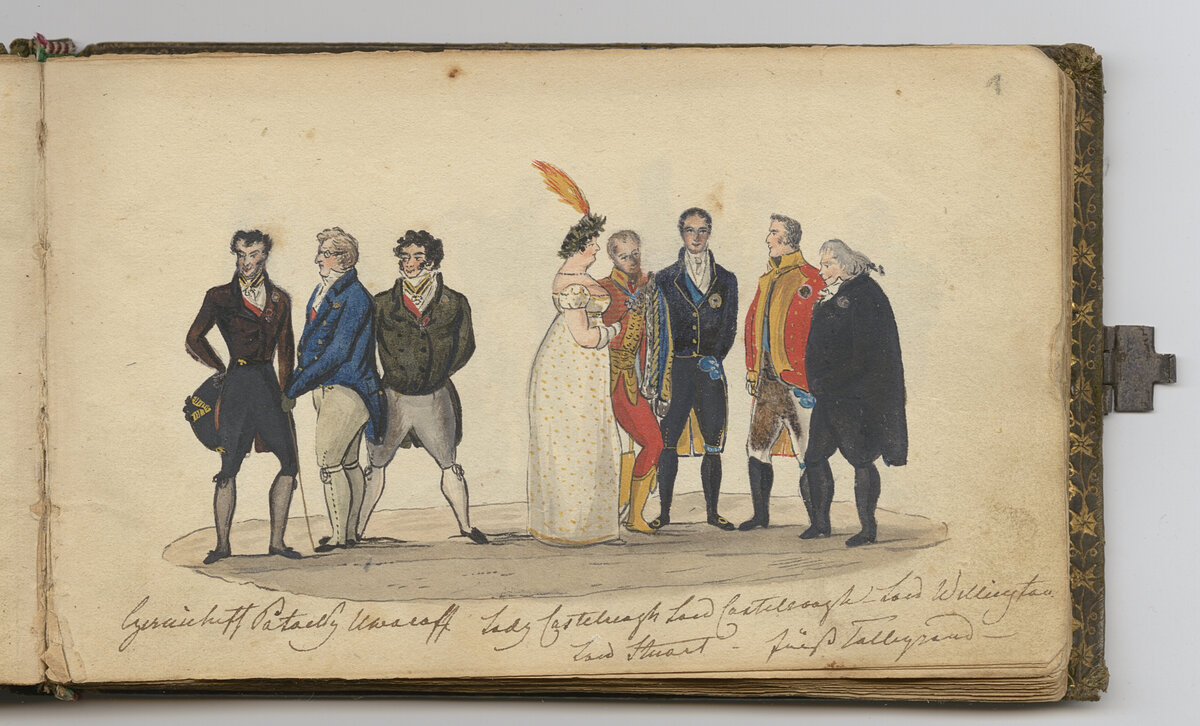 1
Czernicheff Potocky Uwaroff Lady Castelreagh Lord Castelreagh – Lord Wellington
Lord Stuart – fürst Talleyrand –